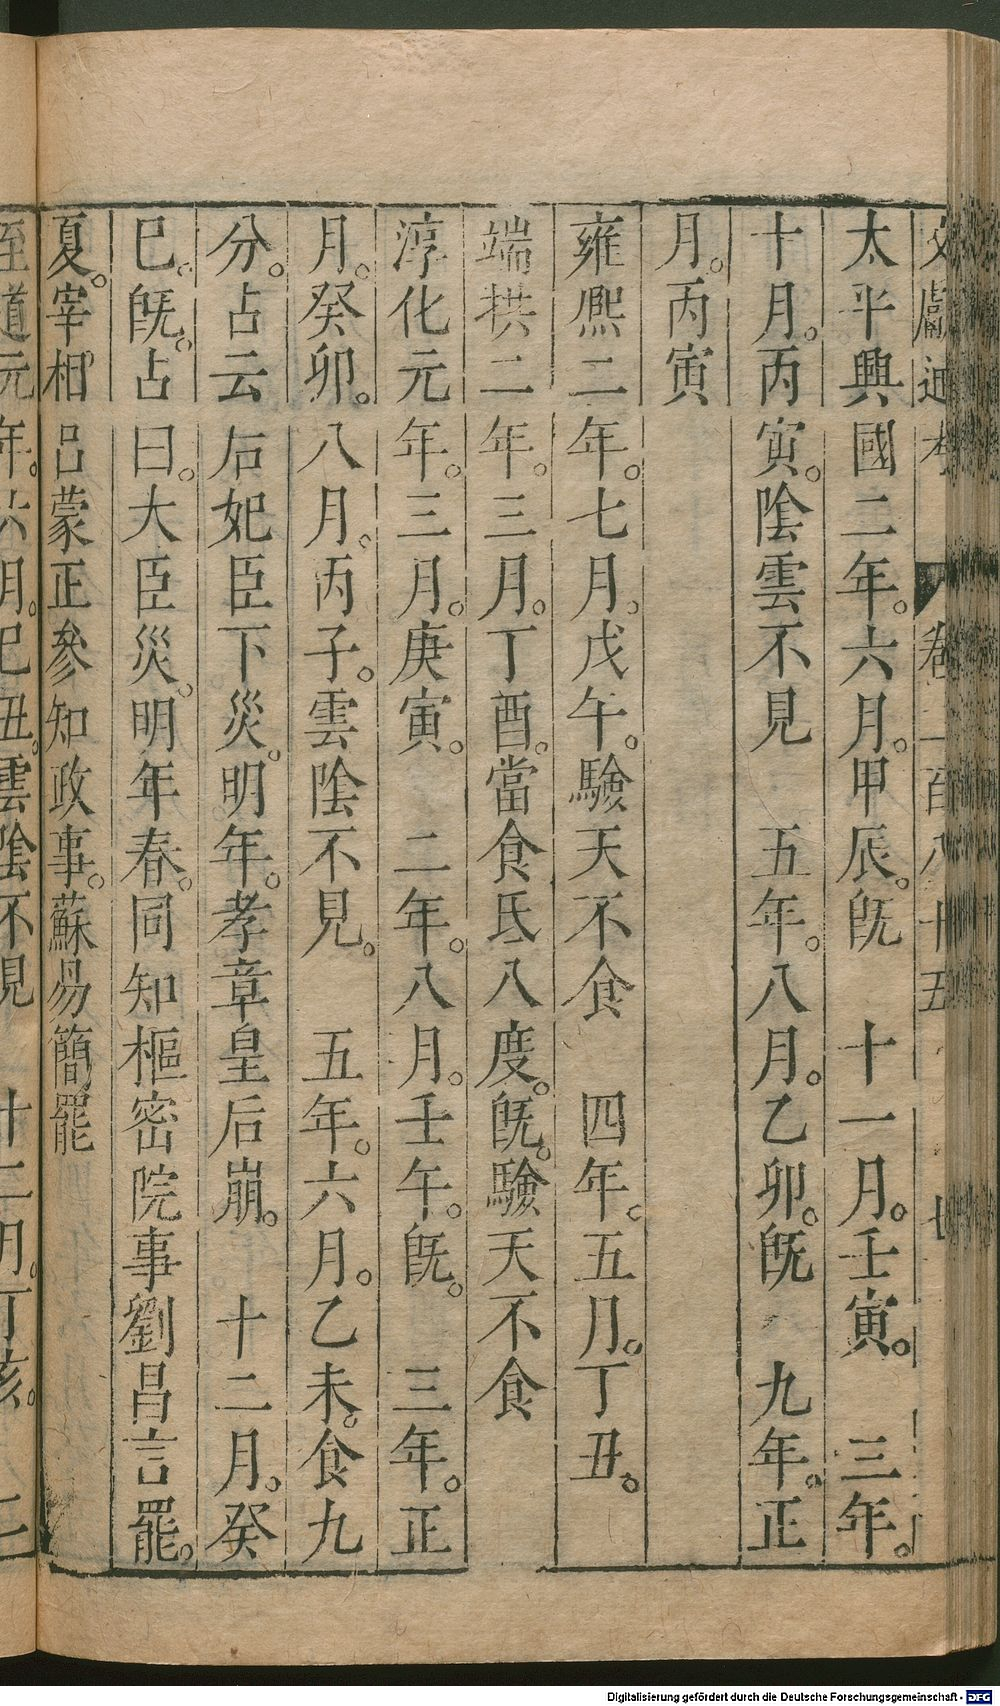 太平興國二年。六月。甲辰。旣　十一月。壬寅。　三年。
十月。丙寅。陰雲不見　五年。八月。乙卯。旣　九年。正
月。丙寅
雍熈二年。七月。戊午。驗天不食　四年。五月。丁丑。
端拱二年。三月。丁酉。當食氐八度。旣。驗天不食
淳化元年。三月。庚寅。　二年。八月。壬午。旣。　三年。正
月。癸卯。八月。丙子。雲陰不見。　五年。六月。乙未。食九
分。占云后妃臣下災。明年。孝章皇后崩。　十二月。癸
巳。旣。占曰。大臣災。明年春。同知樞密院事劉昌言罷。
夏。宰相呂蒙正參知政事。蘇易簡罷
至道元年。六月。己丑。雲陰不見　十二月。丁亥。
Digitalisierung gefördert durch die Deutsche Forschungsgemeinschaft - DFG